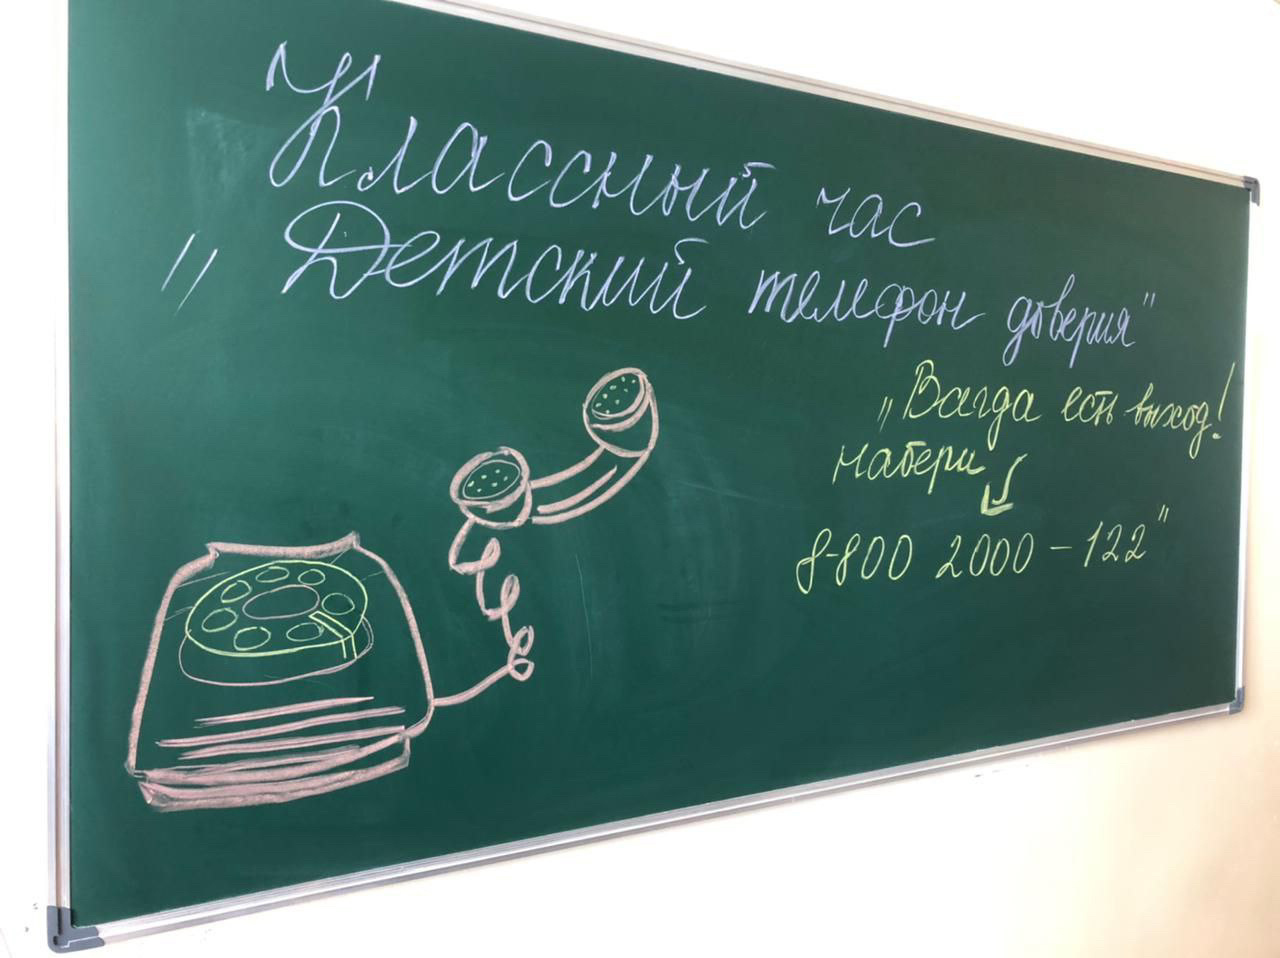 Классный час
„Детский телефон доверия"
„Всегда есть выход!
Набери
8-800 2000-122"